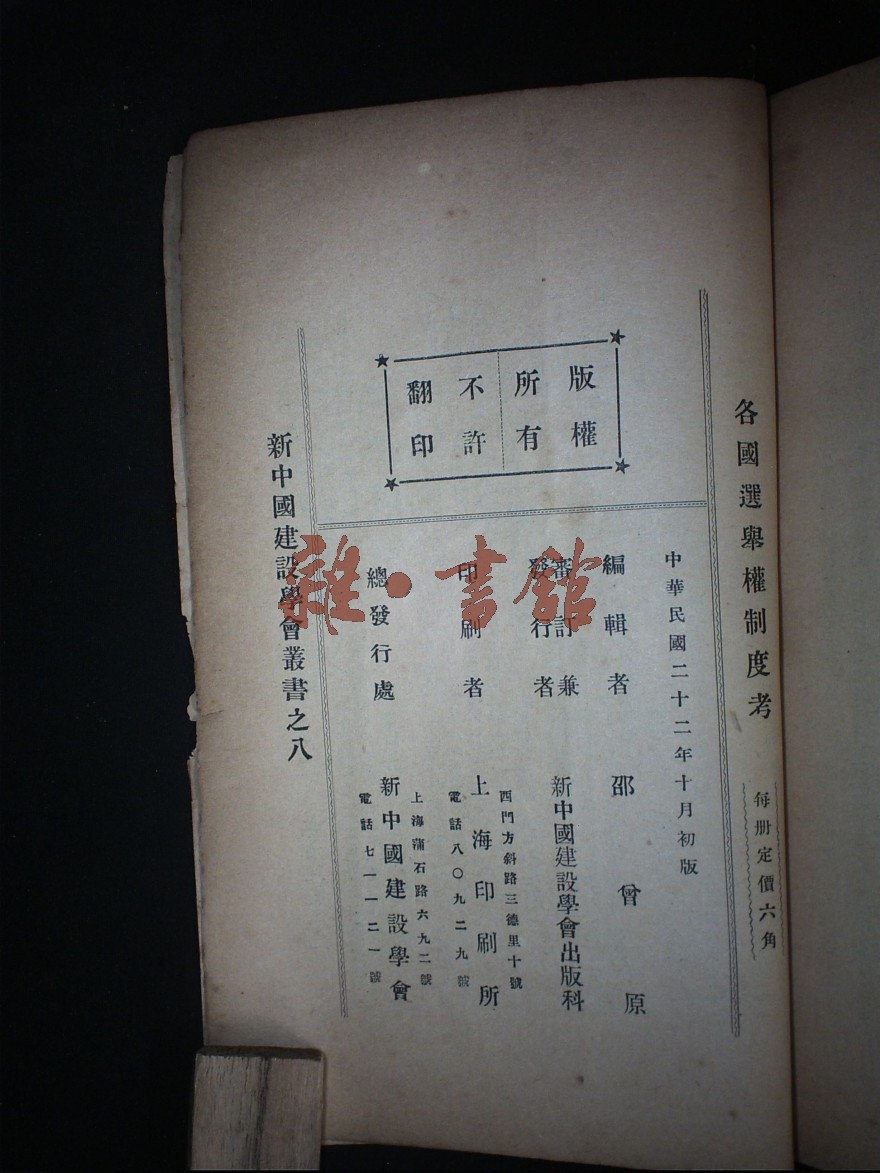 各國選舉權制度考
每册定價六角
版權
所有
不許
翻印
中華民國二十二年十月初版
編輯者 邵曾原
審訂兼
發行者 新中國建設學會出版科
印刷者 上海印刷所
西門方斜路三德里十號
電話八〇九二九號
總發行處 新中國建設學會
上海蒲石路六九二號
電話七一一二一號
新中國建設學會叢書之八
雜·書館